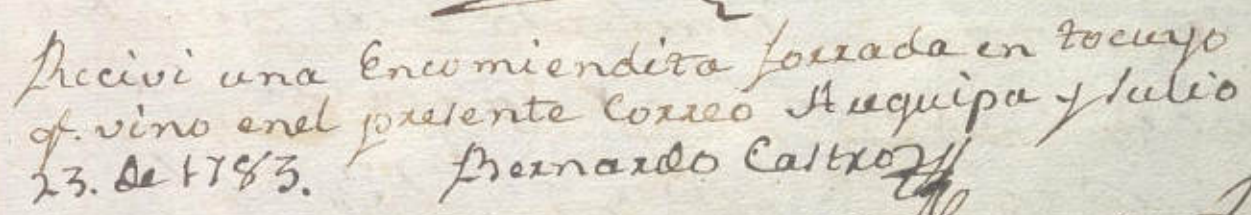 Recivi una Encomiendita forrada en tocuyo
q.e vino enel presente Correo Arequipa y Julio
23. de 1783. Bernardo Castro